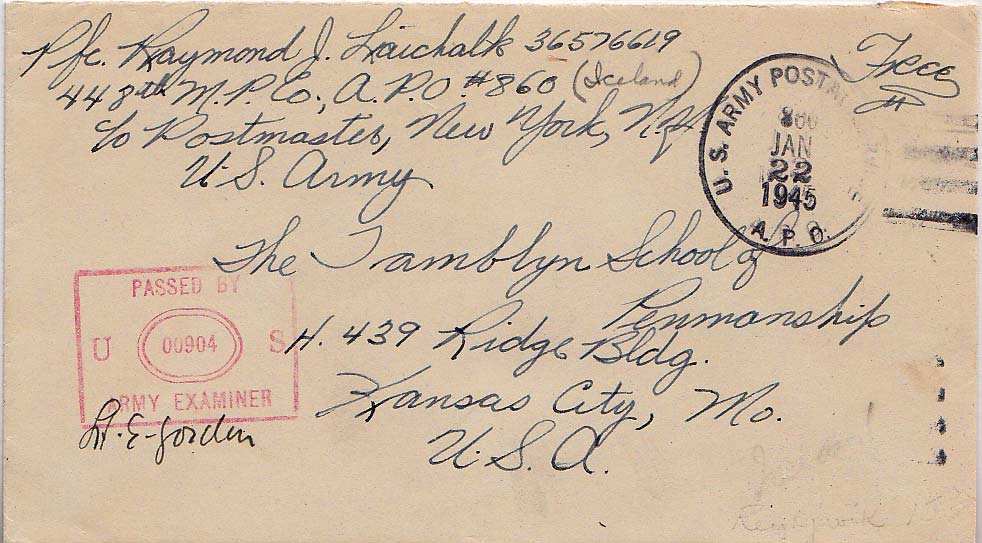 Pfc. Raymond J. Laichalk 36576619
448th M.P. Co., A.P.O #860 (Iceland)
c/o Postmaster, New York, N.Y.
U.S. Army
Free
U.S. ARMY POSTAL
860
JAN
22
1945
A.P.O.
The Tamblyn School of
Penmanship
H. 439 Ridge Bldg.
Kansas City, Mo.
U.S.A.
PASSED BY
U 00904 S
ARMY EXAMINER
H.E. Gorden
Reykjavik